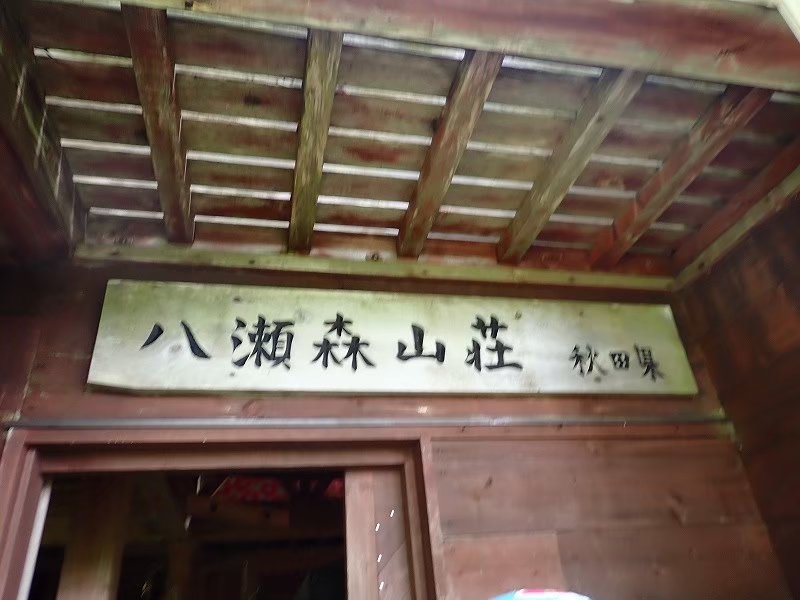 八瀬森山荘 秋田県